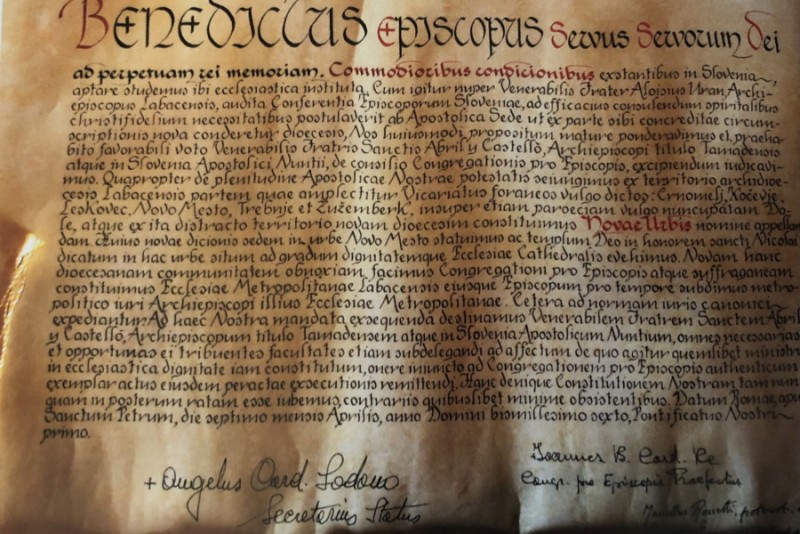 Benedictus Episcopus Servus Servorum Dei
ad perpetuam rei memoriam. Commodioribus condicionibus exstantibus in Slovenia,
aptare studemus ibi ecclesiastica instituta. Cum igitur nuper Venerabilis Frater Aloisius Uran, Archi-
episcopus Labacensis, audita Conferentia Episcoporum Sloveniae, ad efficacius consulendum spiritalibus
christifidelium necessitatibus postulaverit ab Apostolica Sede ut ex parte sibi concreditae circum-
scriptionis nova conderetur dioecesis, Nos huiusmodi propositum mature ponderavimus et, praeha-
bito favorabili voto Venerabilis Fratris Sanctis Abril y Castelló, Archiepiscopi titulo Tamadensis
atque in Slovenia Apostolici Nuntii, de consilio Congregationis pro Episcopis, excipiendum iudicavi-
mus. Quapropter de plenitudine Apostolicae Nostrae potestatis seiungimus ex territorio archidioe-
cesis Labacensis partem quae amplectitur Vicariatus foraneos vulgo dictos: Črnomelj, Kočevje,
Leskovec, Novo Mesto, Trebnje et Žužemberk, insuper etiam paroeciam vulgo nuncupatam Do-
le, atque ex ita distracto territorio novam dioecesim constituimus Novae Urbis nomine appellan-
dam. Cuius novae dicionis sedem in urbe Novo Mesto statuimus ac templum Deo in honorem sancti Nicolai
dicatum in hac urbe situm ad gradum dignitatemque Ecclesiae Cathedralis evehimus. Novam hanc
dioecesanam communitatem obnoxiam facimus Congregationi pro Episcopis atque suffraganeam
constituimus Ecclesiae Metropolitanae Labacensi eiusque Episcopum pro tempore subdimus metro-
politico iuri Archiepiscopi illius Ecclesiae Metropolitanae. Cetera ad normam iuris canonici
expediantur. Ad haec Nostra mandata exsequenda destinamus Venerabilem Fratrem Sanctem Abril
y Castelló, Archiepiscopum titulo Tamadensem atque in Slovenia Apostolicum Nuntium, omnes necessarias
et opportunas ei tribuentes facultates etiam subdelegandi ad effectum de quo agitur quemlibet ministr
in ecclesiastica dignitate iam constitutum, onere iniuncto ad Congregationem pro Episcopis authenticum
exemplar actus eiusdem peractae exsecutionis remittendi. Hanc denique Constitutionem Nostram tam nun
quam in posterum ratam esse iubemus, contrariis quibuslibet minime obsistentibus. Datum Romae, apu
Sanctum Petrum, die septimo mensis Aprilis, anno Domini bismillesimo sexto, Pontificatus Nostri
primo.
+ Angelus Card. Sodano
Secretarius Status
Ioannes B. Card. Re
Congr. pro Episcopis Praefectus